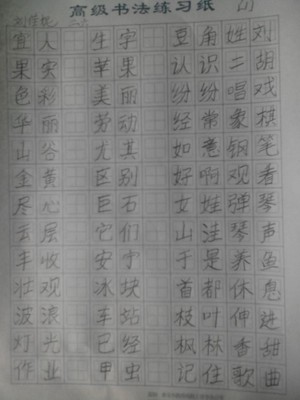 高级书法练习纸
宜人 生字 豆角 姓刘
果实 苹果 认识 二胡
色彩 美丽 纷纷 唱戏
华丽 劳动 经常 象棋
山谷 尤其 如意 钢笔
金黄 区别 好啊 观看
尽心 巨石 女娃 弹琴
云层 它们 山洼 琴声
丰收 安宁 于是 养鱼
壮观 冰块 首都 休息
波浪 车站 枝叶 伸进
灯光 已经 枫林 香甜
作业 甲虫 记住 歌曲